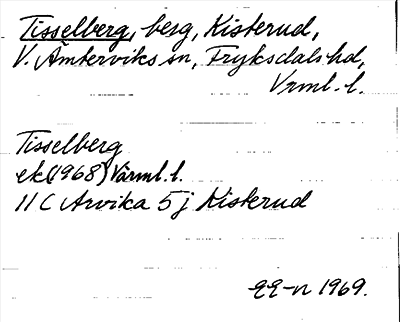 Tisselberg, berg, Kisterud,
V. Ämterviks sn, Fryksdals hd,
Vrml. l.
Tisselberg
ek (1968) Värml. l.
11 C Arvika 5 j Kisterud
1969.